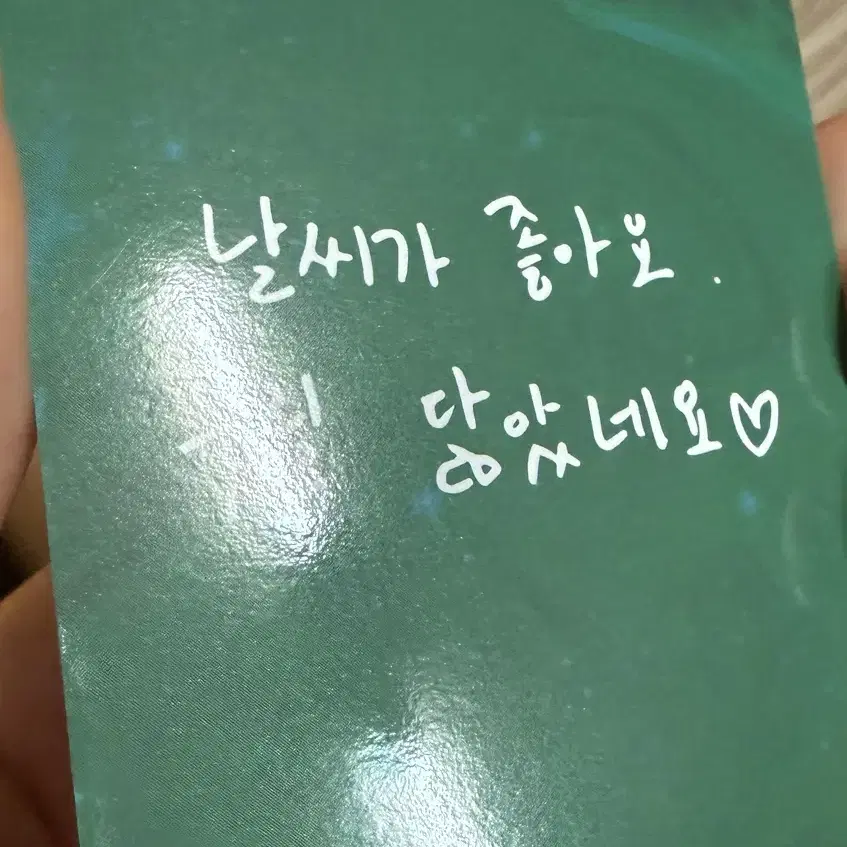 날씨가 좋아요.
닮았네요♡